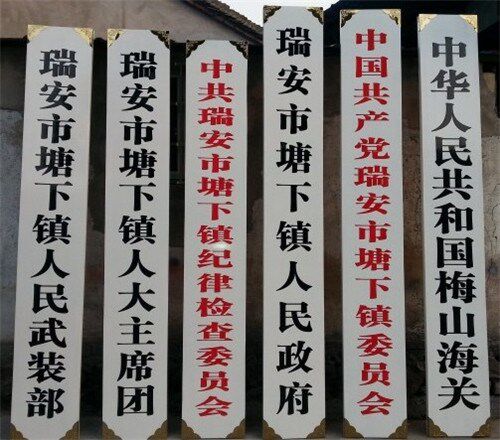 瑞安市塘下镇人民武装部
瑞安市塘下镇人大主席团
中共瑞安市塘下镇纪律检查委员会
瑞安市塘下镇人民政府
中国共产党瑞安市塘下镇委员会
中华人民共和国梅山海关